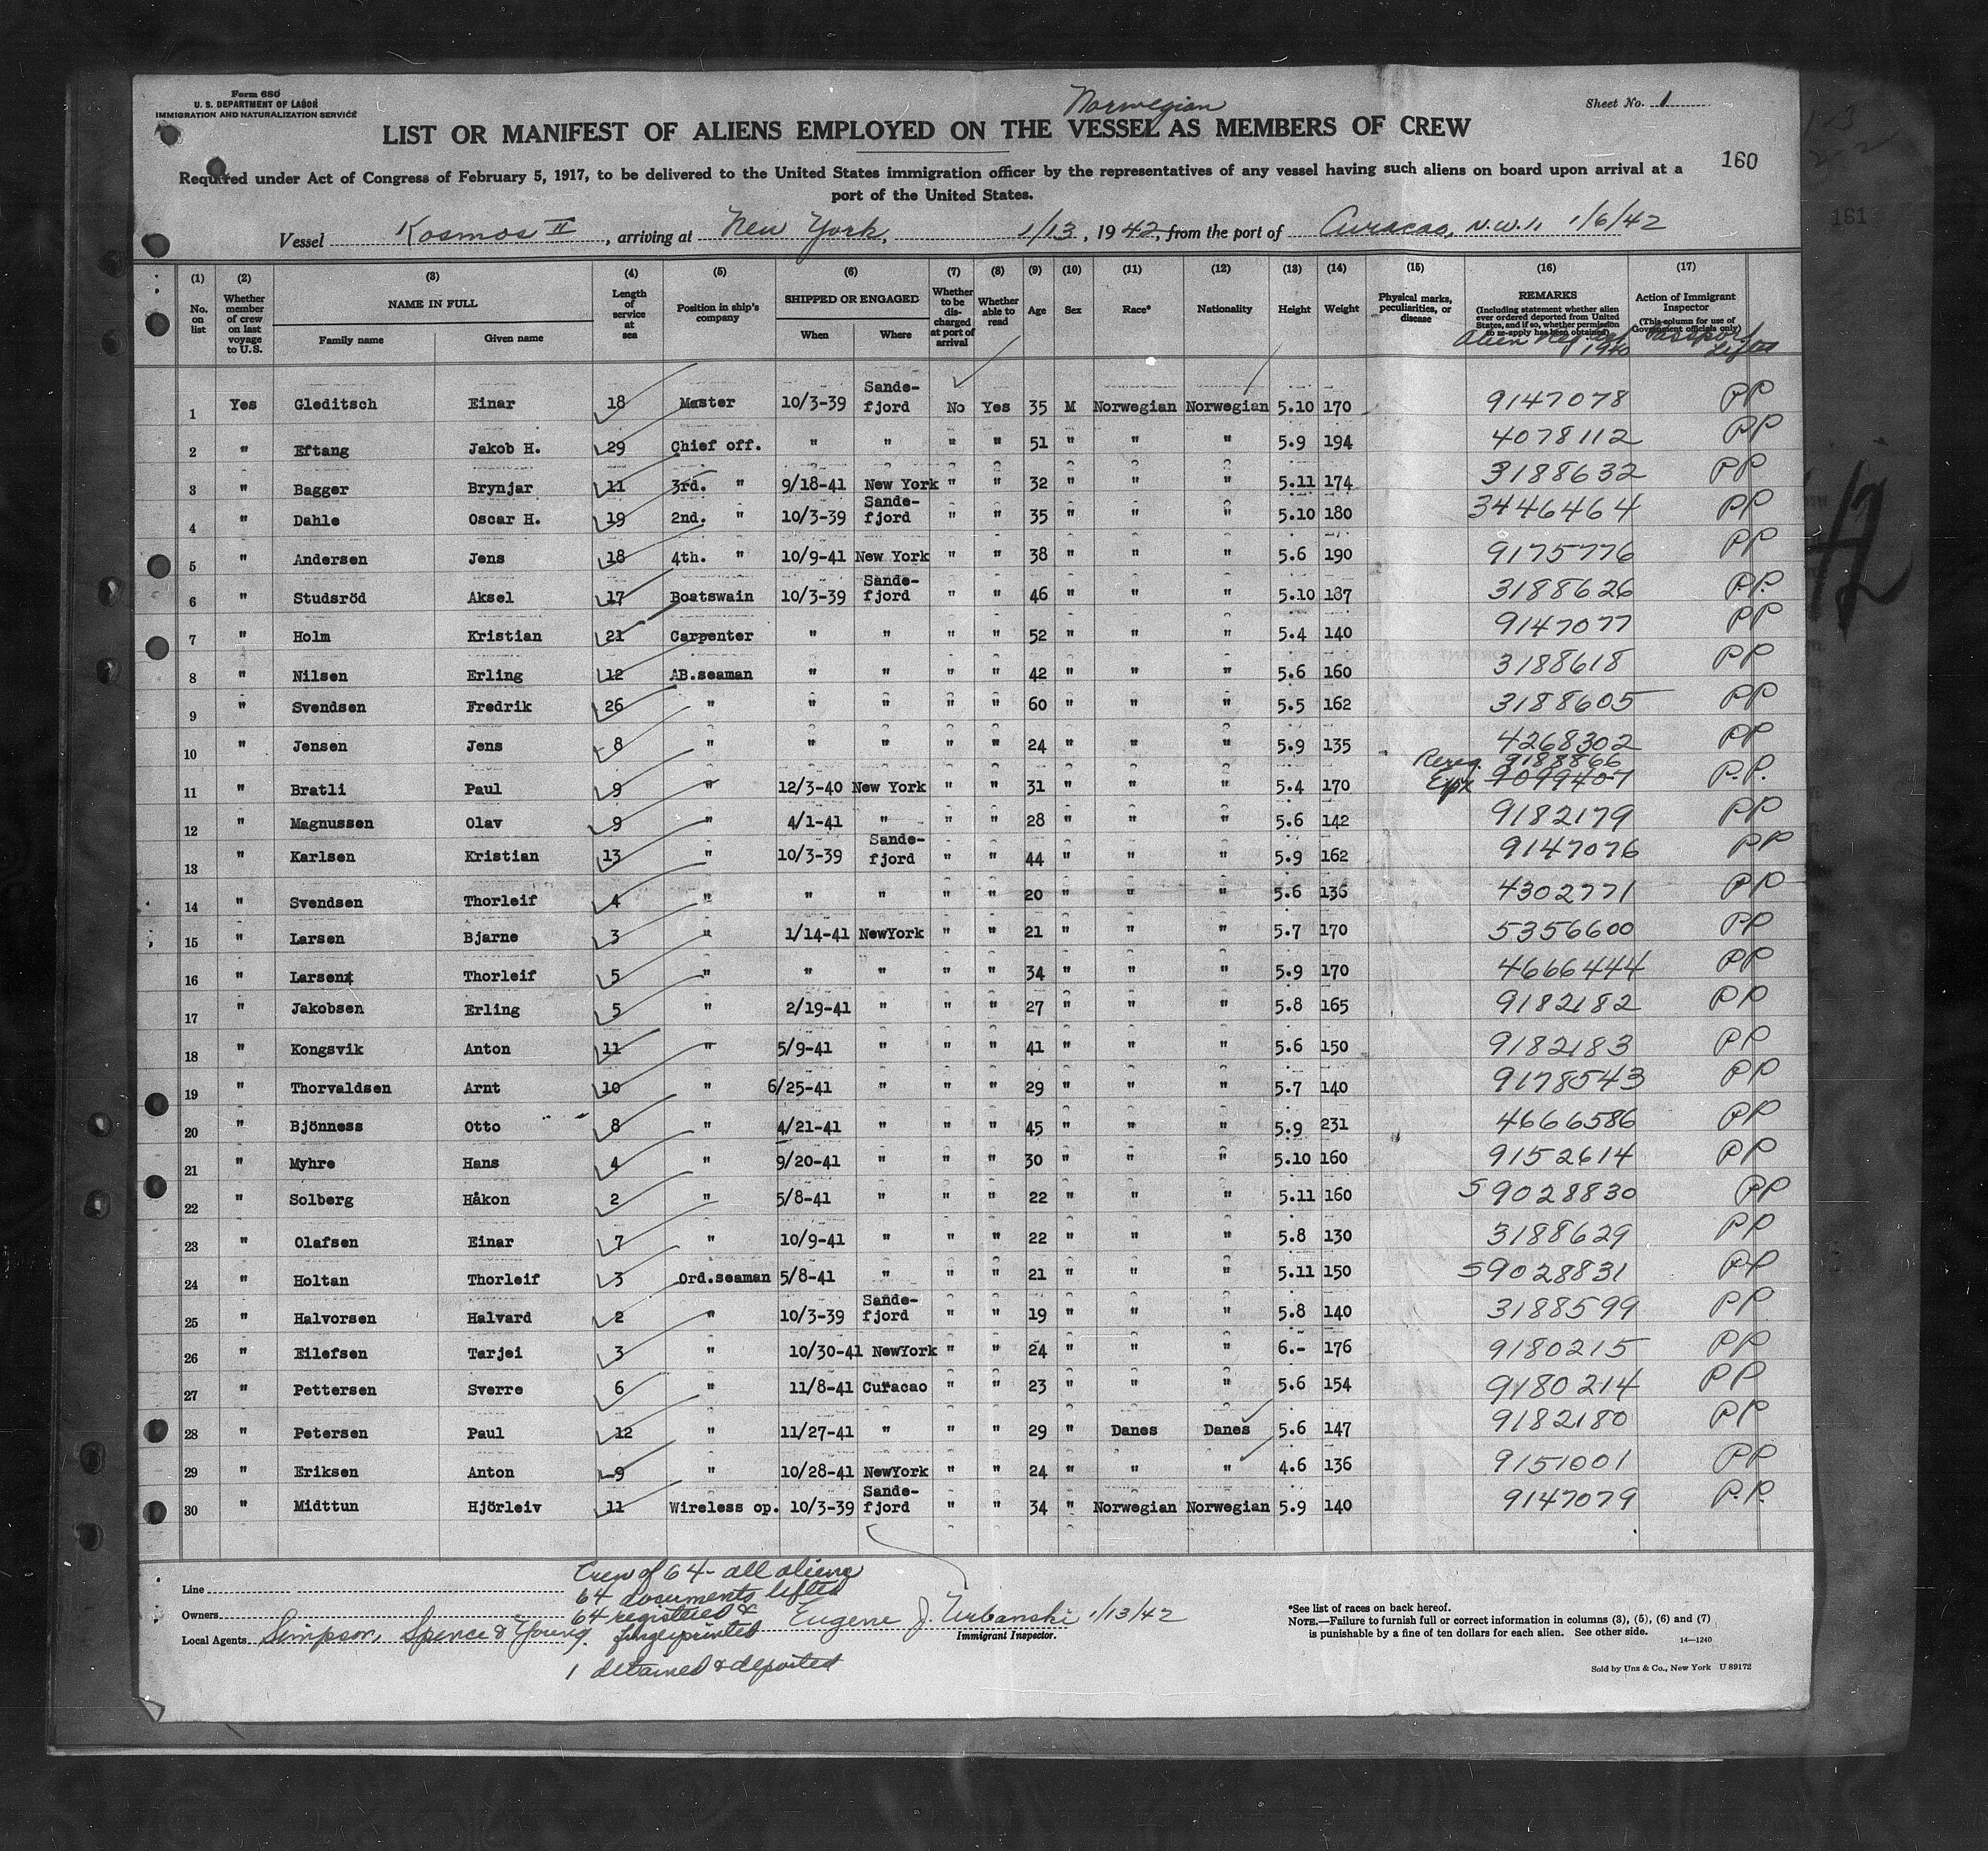 Form 680
U. S. DEPARTMENT OF LABOR
IMMIGRATION AND NATURALIZATION SERVICE
Norwegian
Sheet No. 1
LIST OR MANIFEST OF ALIENS EMPLOYED ON THE VESSEL AS MEMBERS OF CREW
160
Required under Act of Congress of February 5, 1917, to be delivered to the United States immigration officer by the representatives of any vessel having such aliens on board upon arrival at a
port of the United States.
161
Vessel Kosmos II, arriving at New York, 1/13, 1942, from the port of Curacao, N.W.I. 1/6/42
(1) (2) (3) (4) (5) (6) (7) (8) (9) (10) (11) (12) (13) (14) (15) (16) (17)
No. on list
Whether member of crew on last voyage to U.S.
NAME IN FULL
Family name Given name
Length of service at sea
Position in ship's company
SHIPPED OR ENGAGED
When Where
Whether to be discharged at port of arrival
Whether able to read
Age Sex Race* Nationality Height Weight
Physical marks, peculiarities, or disease
REMARKS
(Including statement whether alien ever ordered deported from United States, and if so, whether permission to re-apply has been obtained)
Action of Immigrant Inspector
(This column for use of Government officials only)
Alien Reg. 1940
Passport Lifted
1 Yes Gleditsch Einar 18 Master 10/3-39 Sande-fjord No Yes 35 M Norwegian Norwegian 5.10 170 9147078 PP
2 " Eftang Jakob H. 29 Chief off. " " " " 51 " " " 5.9 194 4078112 PP
3 " Bagger Brynjar 11 3rd. " 9/18-41 New York " " 32 " " " 5.11 174 3188632 PP
4 " Dahle Oscar H. 19 2nd. " 10/3-39 Sande-fjord " " 35 " " " 5.10 180 3446464 PP
5 " Andersen Jens 18 4th. " 10/9-41 New York " " 38 " " " 5.6 190 9175776 PP
6 " Studsröd Aksel 17 Boatswain 10/3-39 Sande-fjord " " 46 " " " 5.10 187 3188626 P.P.
7 " Holm Kristian 21 Carpenter " " " " 52 " " " 5.4 140 9147077 PP
8 " Nilsen Erling 12 AB.seaman " " " " 42 " " " 5.6 160 3188618 PP
9 " Svendsen Fredrik 26 " " " " " 60 " " " 5.5 162 3188605 PP
10 " Jensen Jens 8 " " " " " 24 " " " 5.9 135 4268302 PP
Rereg. 9188866
11 " Bratli Paul 9 " 12/3-40 New York " " 31 " " " 5.4 170 Epx 9099407 P.P.
12 " Magnussen Olav 9 " 4/1-41 " " " 28 " " " 5.6 142 9182179 PP
13 " Karlsen Kristian 13 " 10/3-39 Sande-fjord " " 44 " " " 5.9 162 9147076 PP
14 " Svendsen Thorleif 4 " " " " " 20 " " " 5.6 136 4302771 PP
15 " Larsen Bjarne 3 " 1/14-41 NewYork " " 21 " " " 5.7 170 5356600 PP
16 " Larsen Thorleif 5 " " " " " 34 " " " 5.9 170 4666444 PP
17 " Jakobsen Erling 5 " 2/19-41 " " " 27 " " " 5.8 165 9182182 PP
18 " Kongsvik Anton 11 " 5/9-41 " " " 41 " " " 5.6 150 9182183 PP
19 " Thorvaldsen Arnt 10 " 6/25-41 " " " 29 " " " 5.7 140 9178543 PP
20 " Bjönness Otto 8 " 4/21-41 " " " 45 " " " 5.9 231 4666586 PP
21 " Myhre Hans 4 " 9/20-41 " " " 30 " " " 5.10 160 9152614 PP
22 " Solberg Håkon 2 " 5/8-41 " " " 22 " " " 5.11 160 S9028830 PP
23 " Olafsen Einar 7 " 10/9-41 " " " 22 " " " 5.8 130 3188629 PP
24 " Holtan Thorleif 3 Ord.seaman 5/8-41 " " " 21 " " " 5.11 150 S9028831 PP
25 " Halvorsen Halvard 2 " 10/3-39 Sande-fjord " " 19 " " " 5.8 140 3188599 PP
26 " Eilefsen Tarjei 3 " 10/30-41 NewYork " " 24 " " " 6.- 176 9180215 PP
27 " Pettersen Sverre 6 " 11/8-41 Curacao " " 23 " " " 5.6 154 9180214 PP
28 " Petersen Paul 12 " 11/27-41 " " " 29 " Danes Danes 5.6 147 9182180 PP
29 " Eriksen Anton 9 " 10/28-41 NewYork " " 24 " " " 4.6 136 9151001 PP
30 " Midttun Hjörleiv 11 Wireless op. 10/3-39 Sande-fjord " " 34 " Norwegian Norwegian 5.9 140 9147079 P.P.
Crew of 64 - all aliens
64 documents lifted
64 registered & fingerprinted
1 detained & deported
Line
Owners
Local Agents Simpson, Spence & Young
Eugene J. Urbanski 1/13/42
Immigrant Inspector.
*See list of races on back hereof.
NOTE.—Failure to furnish full or correct information in columns (3), (5), (6) and (7)
is punishable by a fine of ten dollars for each alien. See other side.
14—1240
Sold by Unz & Co., New York U 89172